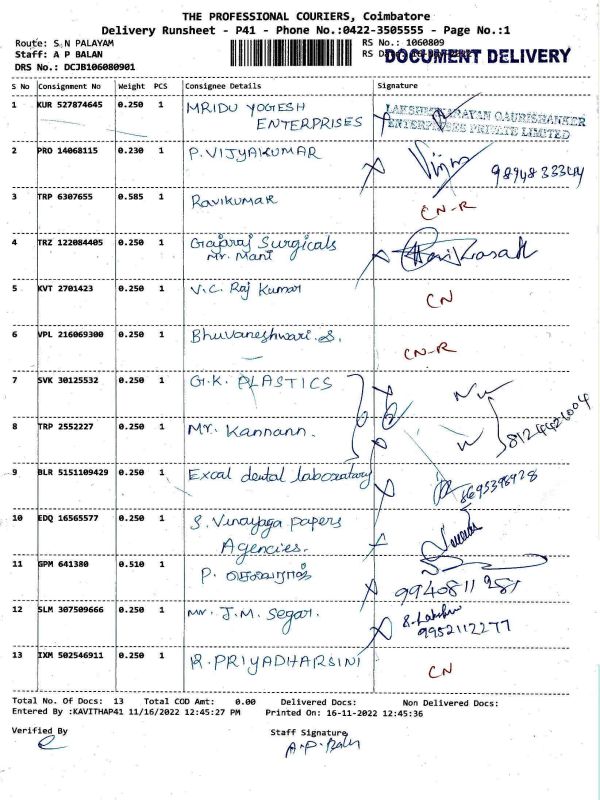 THE PROFESSIONAL COURIERS, Coimbatore
Delivery Runsheet - P41 - Phone No.:0422-3505555 - Page No.:1
Route: S N PALAYAM RS No.: 1060809
Staff: A P BALAN RS D
DOCUMENT DELIVERY
DRS No.: DCJB106080901
S No Consignment No Weight PCS Consignee Details Signature
1 KUR 527874645 0.250 1 MRIDU YOGESH
ENTERPRISES
ENTERPRISES PRIVATE LIMITED
2 PRO 14068115 0.230 1 P. VIJYAKUMAR
3 TRP 6307655 0.585 1 Ravikumar CN-R
4 TRZ 122084405 0.250 1 Gajaraj Surgicals
Mr. Mani
5 KVT 2701423 0.250 1 V.C. Raj Kumar CN
6 VPL 216069300 0.250 1 Bhuvaneshwari.S. CN-R
7 SVK 30125532 0.250 1 G.K. PLASTICS
8 TRP 2552227 0.250 1 Mr. Kannann.
9 BLR 5151109429 0.250 1 Excal dental laboratary 8695398928
10 EDQ 16565577 0.250 1 S. Vinayaga papers
Agencies.
11 GPM 641380 0.510 1 P. செல்வராஜ்
12 SLM 307509666 0.250 1 Mr. J.M. Segar. 9952112277
13 IXM 502546911 0.250 1 R. PRIYADHARSINI CN
Total No. Of Docs: 13 Total COD Amt: 0.00 Delivered Docs: Non Delivered Docs:
Entered By :KAVITHAP41 11/16/2022 12:45:27 PM Printed On: 16-11-2022 12:45:36
Verified By Staff Signature
A.P. Balan